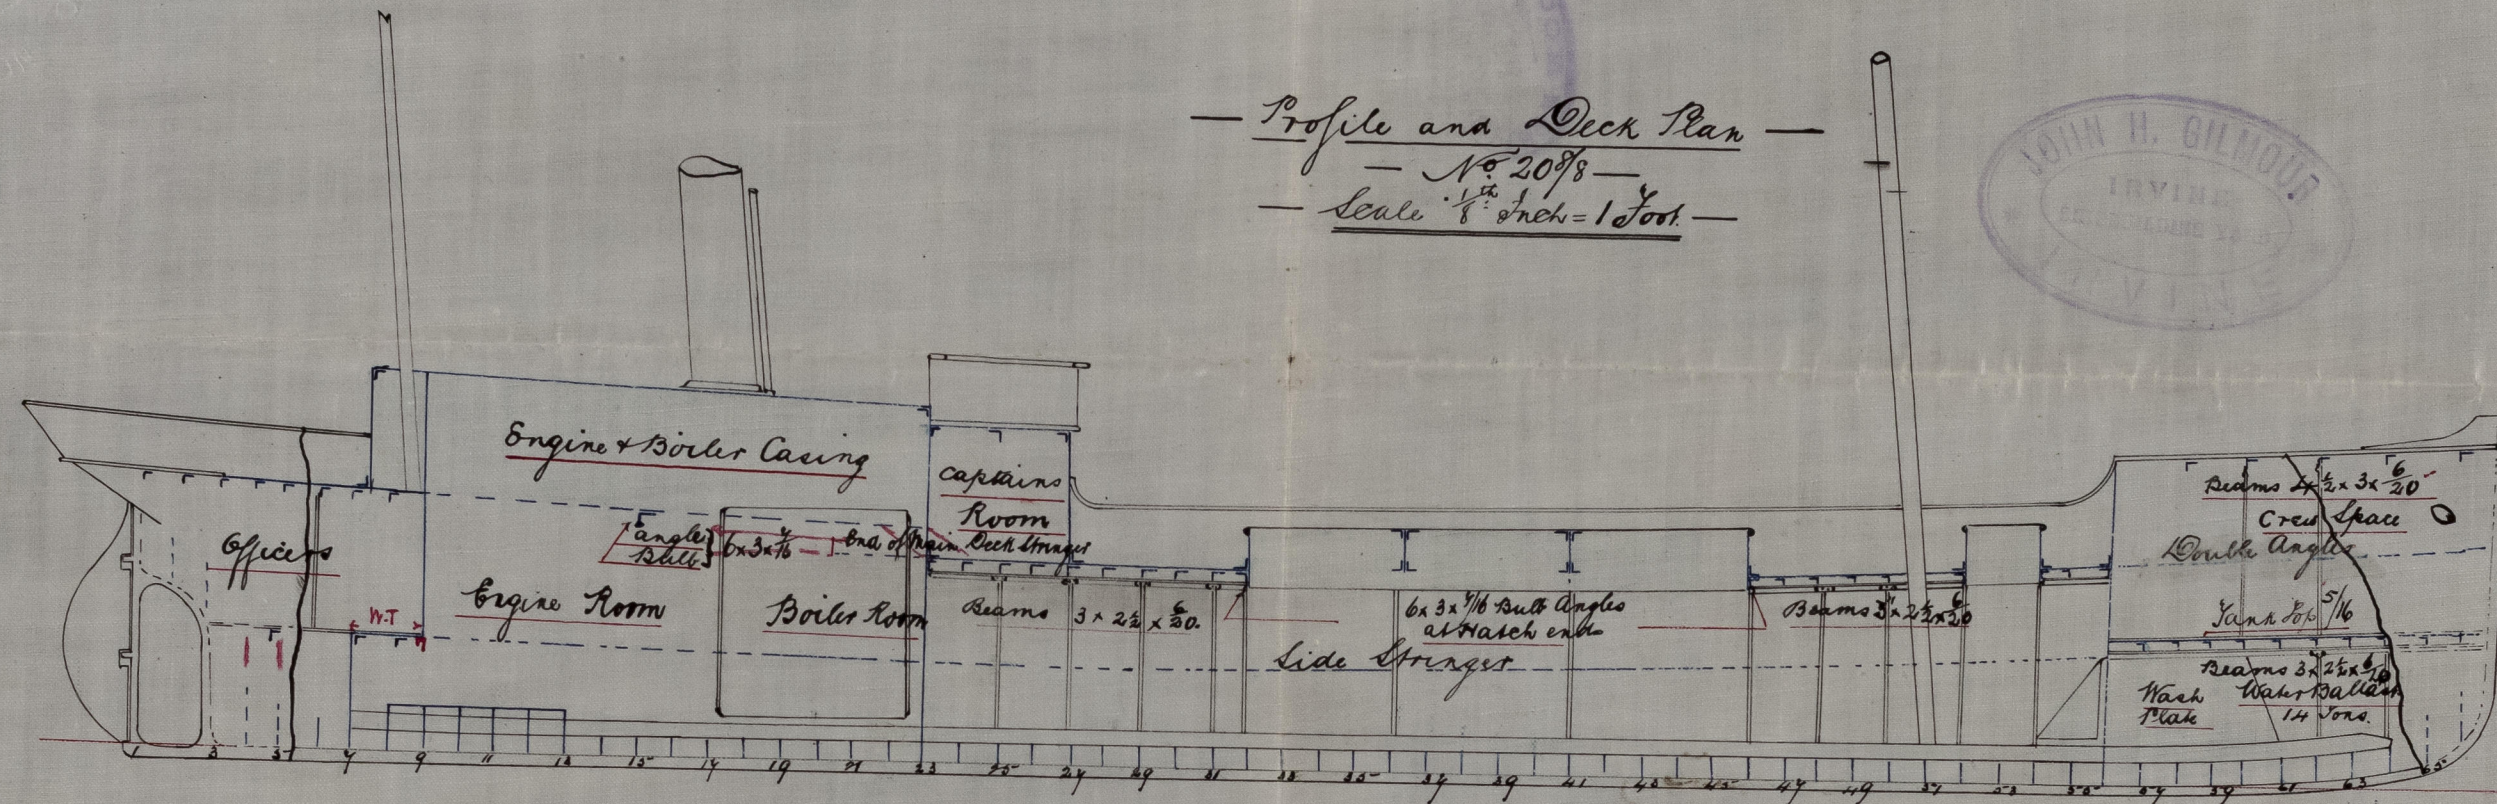 — Profile and Deck Plan —
— No. 208/8 —
— Scale 1/8th Inch = 1 Foot. —
JOHN H. GILMOUR
IRVINE
Engine & Boiler Casing
Captains
Room
Officers
angle
Bulb } 6 x 3 x 7/16
End of Main Deck Stringer
W.T
Engine Room
Boiler Room
Beams 3 x 2½ x 6/20.
6 x 3 x 7/16 Bulb Angles
at Hatch ends
Side Stringer
Beams 3 x 2½ x 6/20
Beams 4½ x 3 x 6/20
Crew Space
Double Angles
Tank Top 5/16
Beams 3 x 2½ x 6/20
Wash
Plate
Water Ballast
14 Tons.
1 3 5 7 9 11 13 15 17 19 21 23 25 27 29 31 33 35 37 39 41 43 45 47 49 51 53 55 57 59 61 63 65